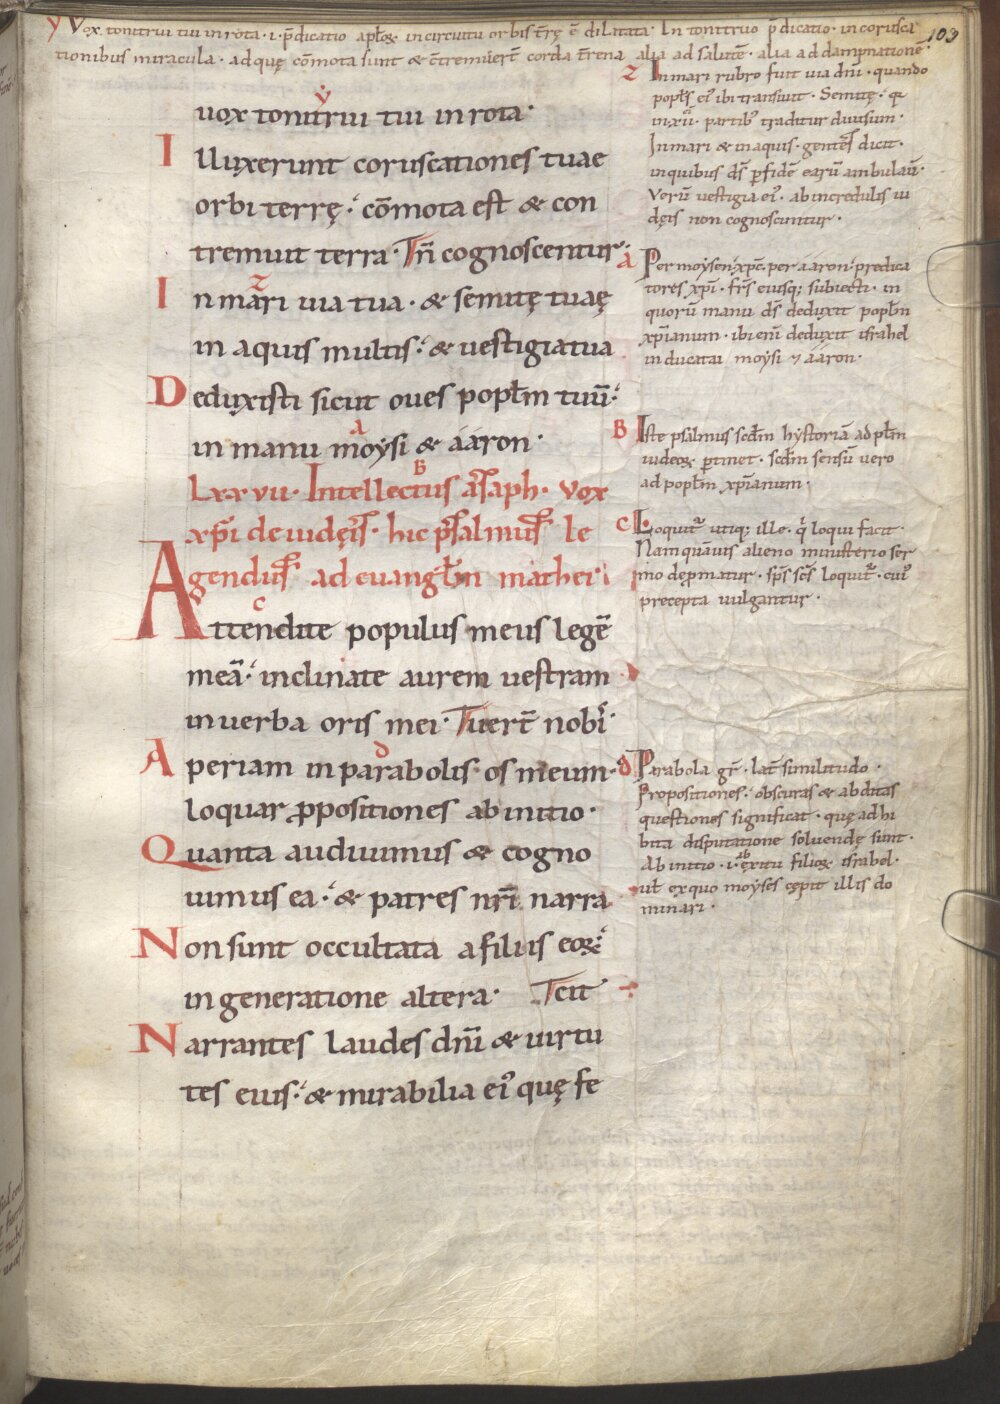 y Vox tonitrui tui in rota · i · p̄dicatio apl̄oꝝ in circuitu orbis t̄rę ē dilatata · In tonitruo p̄dicatio · in corusca
tionibus miracula · ad quę cōmota sunt & c̄tremuer̄t corda t̄rena alia ad salutē · alia ad dampnationē
109
uox tonitrui tui in rota ·
y
Illuxerunt coruscationes tuae
orbi terrę · cōmota est & con
tremuit terra · Tn̄ cognoscentur ·
In mari uia tua · & semitę tuaę
z
in aquis multis · & uestigia tua
Deduxisti sicut oues popl̄m tuū ·
in manu moysi & ááron ·
a
Lxxvii · Intellectus asaph · vox
B
xp̄i de iudęis · hic psalmus le
gendus ad euangl̄m mathei
Attendite populus meus legē
c
meā · inclinate aurem uestram
in uerba oris mei · Tuer̄t nobı̄ ·
Aperiam in parabolis os meum ·
d
loquar ꝓpositiones ab initio ·
Quanta audiuimus & cogno
uimus ea · & patres nr̄i narra
Non sunt occultata a filiis eoꝝ
in generatione altera · Tcit
Narrantes laudes dn̄i & uirtu
tes eius · & mirabilia ei' quę fe
z In mari rubro fuit uia dn̄i · quando
popl̄s ei' ibi transiuit · Semitę · q
in xii · partib' traditur diuisum ·
In mari & in aquis · gentes dicit ·
in quibus ds̄ p̱ fidē earū ambulau̅ ·
Verū uestigia ei' · ab incredulis iu
dęis non cognoscuntur ·
a Per moysen · xp̄c · per ááron · predica
tores xp̄i · frs̄ eiusq; subiecti · in
quorū manu ds̄ deduxit popl̄m
xp̄ianum · ibi enī deduxit israhel
in ducatu moysi ⁊ ááron ·
B Iste psalmus scdm̄ hystoriā ad pl̄m
iudeoꝝ p̱tinet · scdm̄ sensū uero
ad popl̄m xp̄ianum ·
c Loquit̄ utiq; ille · q̇ loqui facit ·
Nam quāuis alieno ministerio ser
mo depmatur · sp̄s sc̄s loquit̄ · cui'
precepta uulgantur ·
d Parabola gr̄ · lat̄ similitudo ·
Propositiones · obscuras & abditas
questiones significat · quę ad hi
bita disputatione soluendę sunt ·
Ab initio · i · ab exitu filioꝝ israhel ·
ul̄ ex quo moyses cępit illis do
minari ·